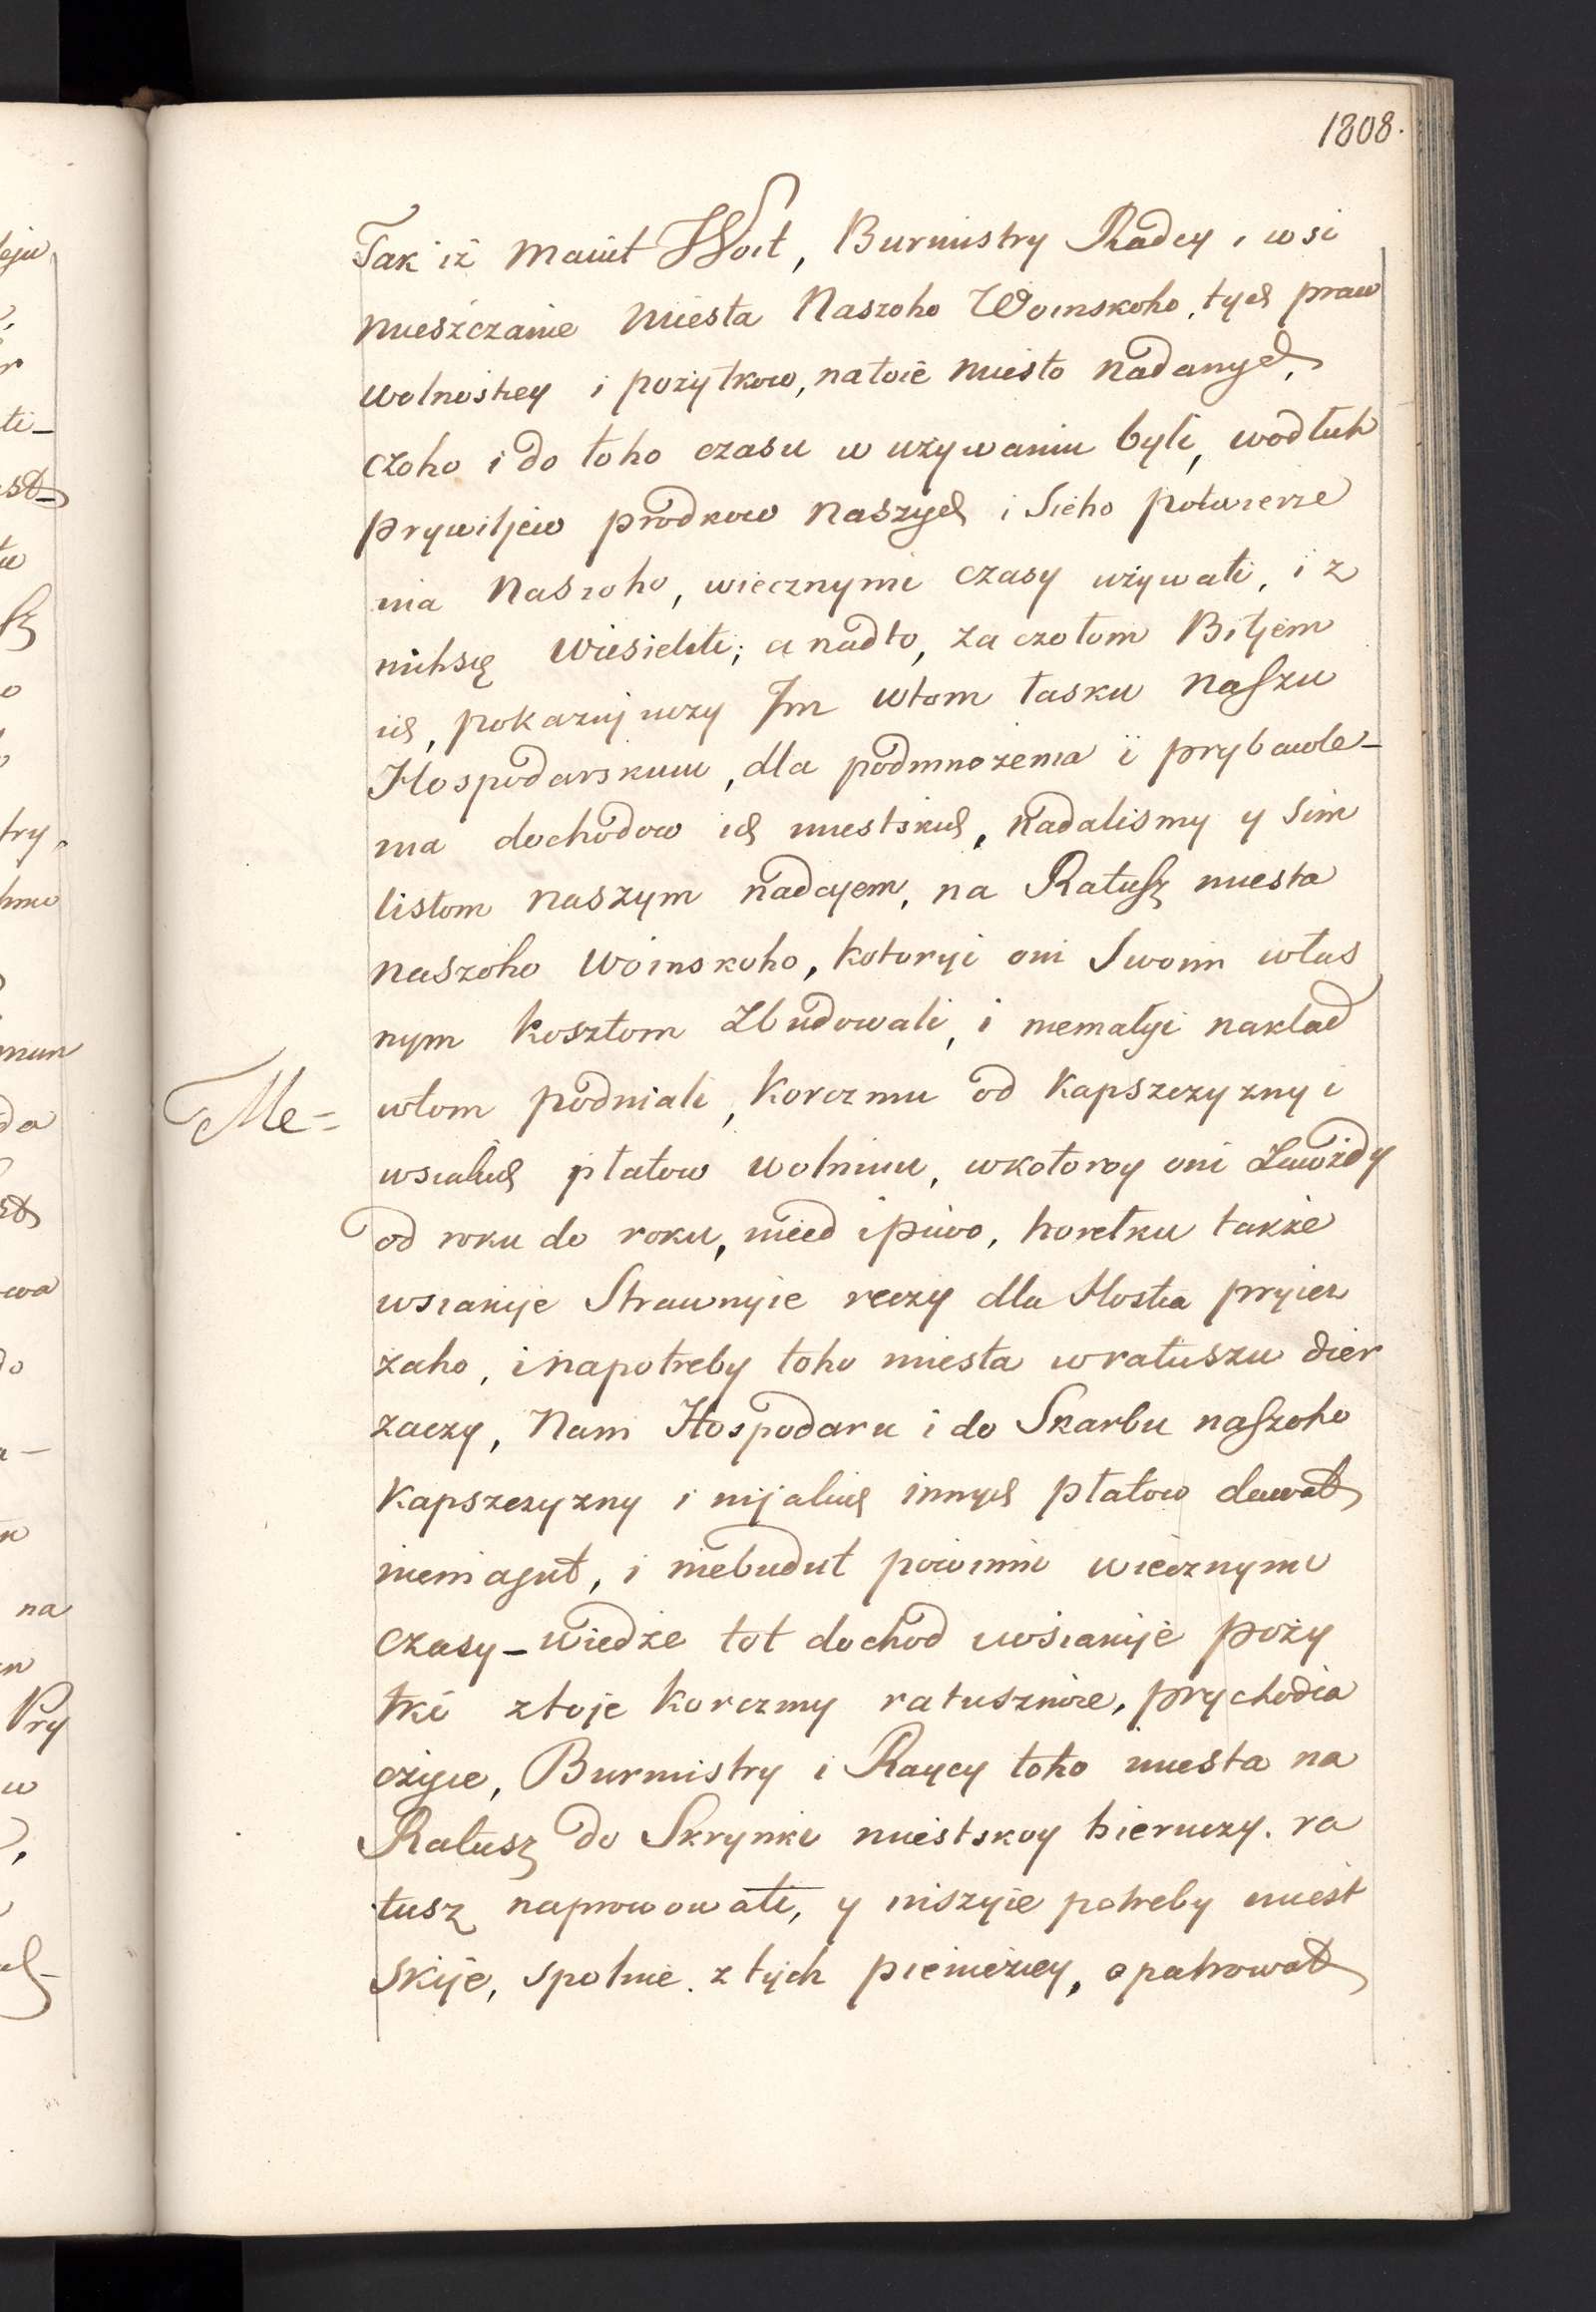 1808.
Tak iż maiut Woit, Burmistry Radcy, i wsi
mieszczanie miesta Naszoho Woinskoho, tych praw
wolnostey i pożytkow, na toie miesto nadanych,
czoho i do toho czasu w używaniu byli, wodłuh
prywiljew prodkow naszych i Sieho potwierże
nia Naszoho, wiecznymi czasy używali, i z
nichsię wiesielili; a nadto, za czołom Bitjem
ich, pokazujuczy Im wtom łasku naszu
Hospodarskuiu, dla podmnożenia i prybawle-
nia dochodow ich miestskich, Nadalismy y sim
listom naszym nadajem, na Ratusz miesta
naszoho woinskoho, kotoryi oni Swoim włas
nym kosztom Zbudowali, i niemałyi nakład
wtom podniali, Korczmu od Kapszczyzny i
Me=
wsiakich płatow wolnuiu, wkotoroy oni Zawżdy
od roku do roku, mied i piwo, horełku także
wsiakije Strawnyie reczy dla Hostia pryiez
żaho, i na potreby toho miesta w ratuszu dier
żaczy, Nam Hospodaru i do Skarbu naszoho
Kapszczyzny i nijakich innych płatow dawat
niemajut, i niebudut powinni wiecznymi
czasy – wiedże tot dochod i wsiakije poży
tki ztoje korczmy ratusznoie, prychodia
czyie, Burmistry i Raycy toho miesta na
Ratusz do Skrynki miestskoy bieruczy. ra
tusz naprowowati, y inszyie potreby miest
skije, spolnie z tych pienieziey, opatrowat